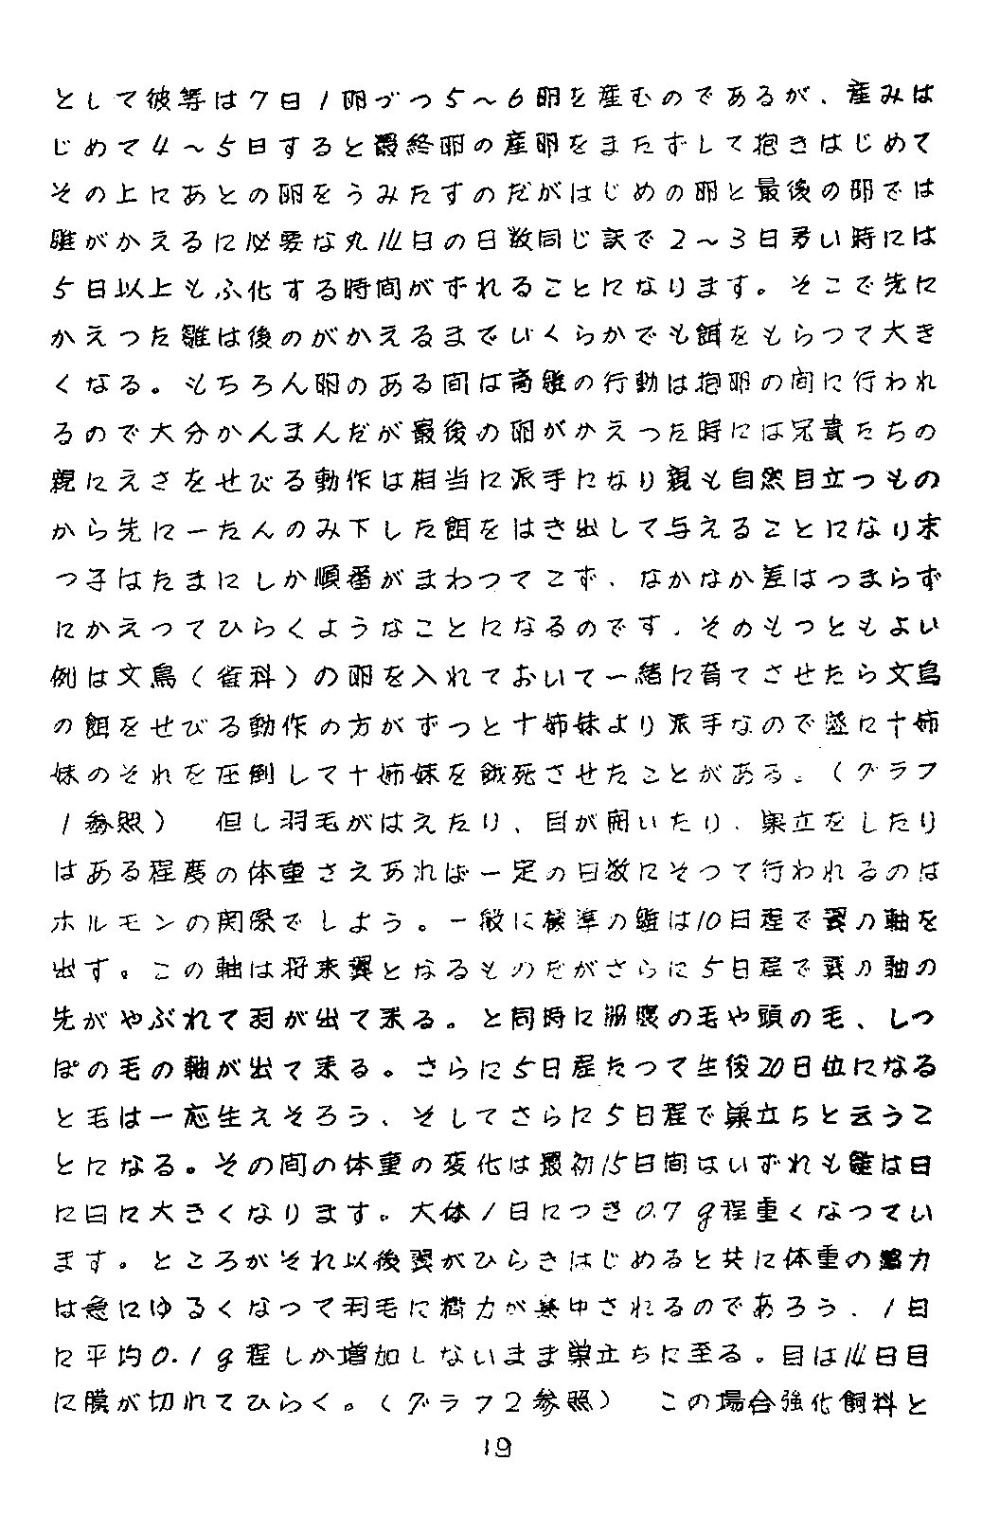 として彼等は7日1卵づつ5～6卵を産むのであるが、産みは
じめて4～5日すると最終卵の産卵をまたずして抱きはじめて
その上にあとの卵をうみたすのだがはじめの卵と最後の卵では
雛がかえるに必要な丸14日の日数同じ訳で2～3日多い時には
5日以上もふ化する時間がずれることになります。そこで先に
かえつた雛は後のがかえるまでいくらかでも餌をもらつて大き
くなる。もちろん卵のある間は育雛の行動は抱卵の間に行われ
るので大分かんまんだが最後の卵がかえつた時には兄貴たちの
親にえさをせびる動作は相当に派手になり親も自然目立つもの
から先に一たんのみ下した餌をはき出して与えることになり末
つ子はたまにしか順番がまわつてこず、なかなか差はつまらず
にかえつてひらくようなことになるのです。そのもつともよい
例は文鳥（雀科）の卵を入れておいて一緒に育てさせたら文鳥
の餌をせびる動作の方がずつと十姉妹より派手なので遂に十姉
妹のそれを圧倒して十姉妹を餓死させたことがある。（グラフ
1参照）　但し羽毛がはえたり、目が開いたり、巣立をしたり
はある程度の体重さえあれば一定の日数にそつて行われるのは
ホルモンの関係でしよう。一般に標準の雛は10日程で翼の軸を
出す。この軸は将来翼となるものだがさらに5日程で翼の軸の
先がやぶれて羽が出て来る。と同時に胸腹の毛や頭の毛、しつ
ぽの毛の軸が出て来る。さらに5日程たつて生後20日位になる
と毛は一応生えそろう、そしてさらに5日程で巣立ちと云うこ
とになる。その間の体重の変化は最初15日間はいずれも雛は日
に日に大きくなります。大体1日につき0.7g程重くなつてい
ます。ところがそれ以後翼がひらきはじめると共に体重の増加
は急にゆるくなつて羽毛に精力が集中されるのであろう、1日
に平均0.1g程しか増加しないまま巣立ちに至る。目は14日目
に膜が切れてひらく。（グラフ2参照）　この場合強化飼料と
19